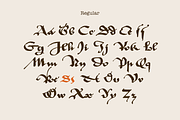 Regular
Aa Bb Cc Dd Ee Ff
Gg Hh Ii Jj Kk Ll
Mm Nn Oo Pp Qq
Rr Ss Tt Uu Vv
Ww Xx Yy Zz